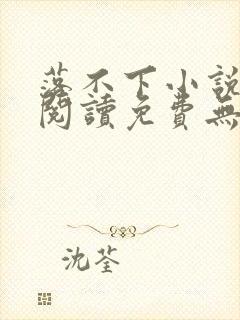 落不下小說
閱讀免費無
沈荃